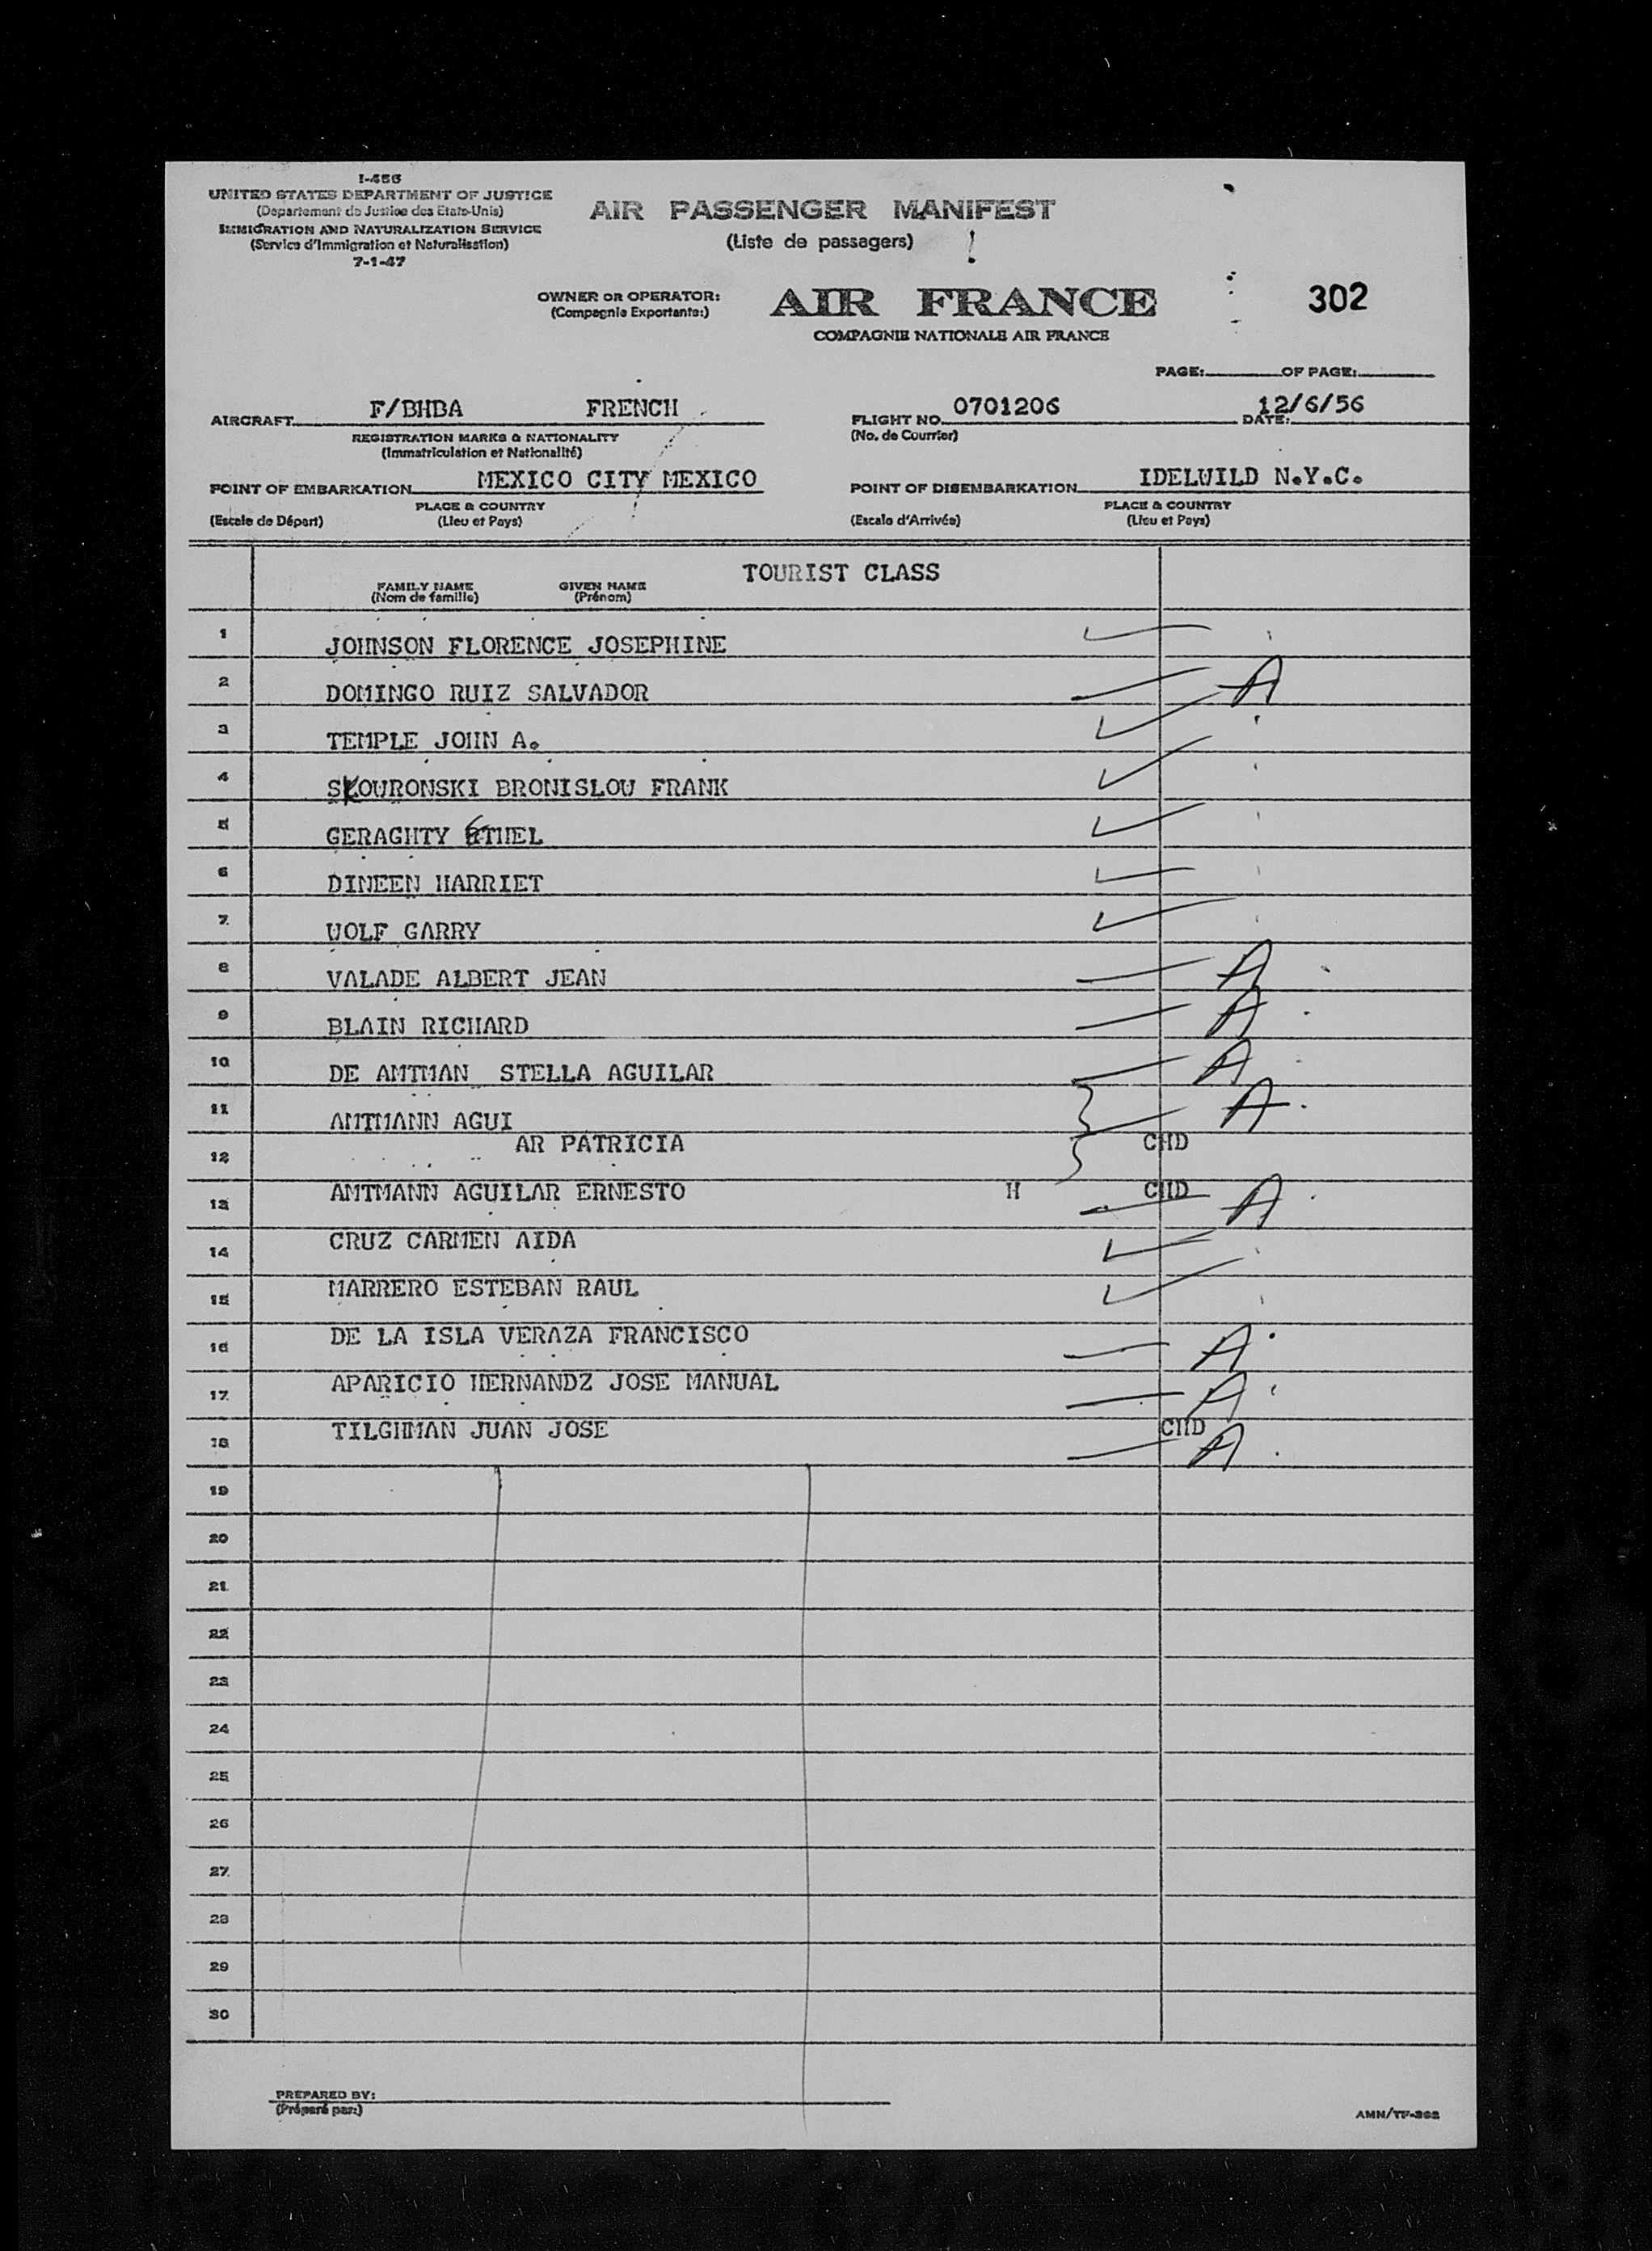 I-466
UNITED STATES DEPARTMENT OF JUSTICE
(Departement de Justice des Etats-Unis)
IMMIGRATION AND NATURALIZATION SERVICE
(Service d'Immigration et Naturalisation)
7-1-47
AIR PASSENGER MANIFEST
(Liste de passagers)
OWNER OR OPERATOR:
(Compagnie Exportante:)
AIR FRANCE
COMPAGNIE NATIONALE AIR FRANCE
302
PAGE: OF PAGE:
AIRCRAFT F/BHBA FRENCH FLIGHT NO. 0701206 DATE: 12/6/56
REGISTRATION MARKS & NATIONALITY (No. de Courrier)
(Immatriculation et Nationalité)
POINT OF EMBARKATION MEXICO CITY MEXICO POINT OF DISEMBARKATION IDELWILD N.Y.C.
PLACE & COUNTRY PLACE & COUNTRY
(Escale de Départ) (Lieu et Pays) (Escale d'Arrivée) (Lieu et Pays)
TOURIST CLASS
FAMILY NAME GIVEN NAME
(Nom de famille) (Prénom)
1 JOHNSON FLORENCE JOSEPHINE
2 DOMINGO RUIZ SALVADOR A
3 TEMPLE JOHN A.
4 SKOWRONSKI BRONISLOW FRANK
5 GERAGHTY ETHEL
6 DINEEN HARRIET
7 WOLF GARRY
8 VALADE ALBERT JEAN A
9 BLAIN RICHARD A
10 DE AMTMAN STELLA AGUILAR A
11 AMTMANN AGUI A
12 AR PATRICIA CHD
13 AMTMANN AGUILAR ERNESTO H CHD A
14 CRUZ CARMEN AIDA
15 MARRERO ESTEBAN RAUL
16 DE LA ISLA VERAZA FRANCISCO A
17 APARICIO HERNANDZ JOSE MANUAL A
18 TILGHMAN JUAN JOSE CHD A
19
20
21
22
23
24
25
26
27
28
29
30
PREPARED BY:
(Préparé par:)
AMN/TF-302